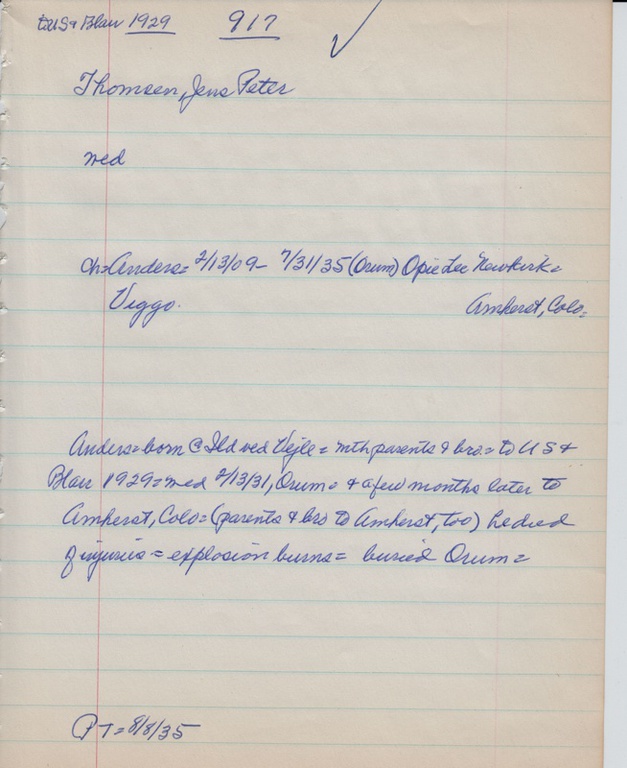 to US & Blair 1929 917
Thomsen, Jens Peter
med
ch= Anders= 2/13/09- 7/31/35 (Orum) Opie Lee Newkirk=
Viggo. Amherst, Colo=
Anders= born @ Ildved Vejle= with parents & bro.= to US &
Blair 1929= med 2/13/31, Orum= & a few months later to
Amherst, Colo= (parents & bro to Amherst, too) he died
of injuries= explosion burns= buried Orum=
PT= 8/8/35